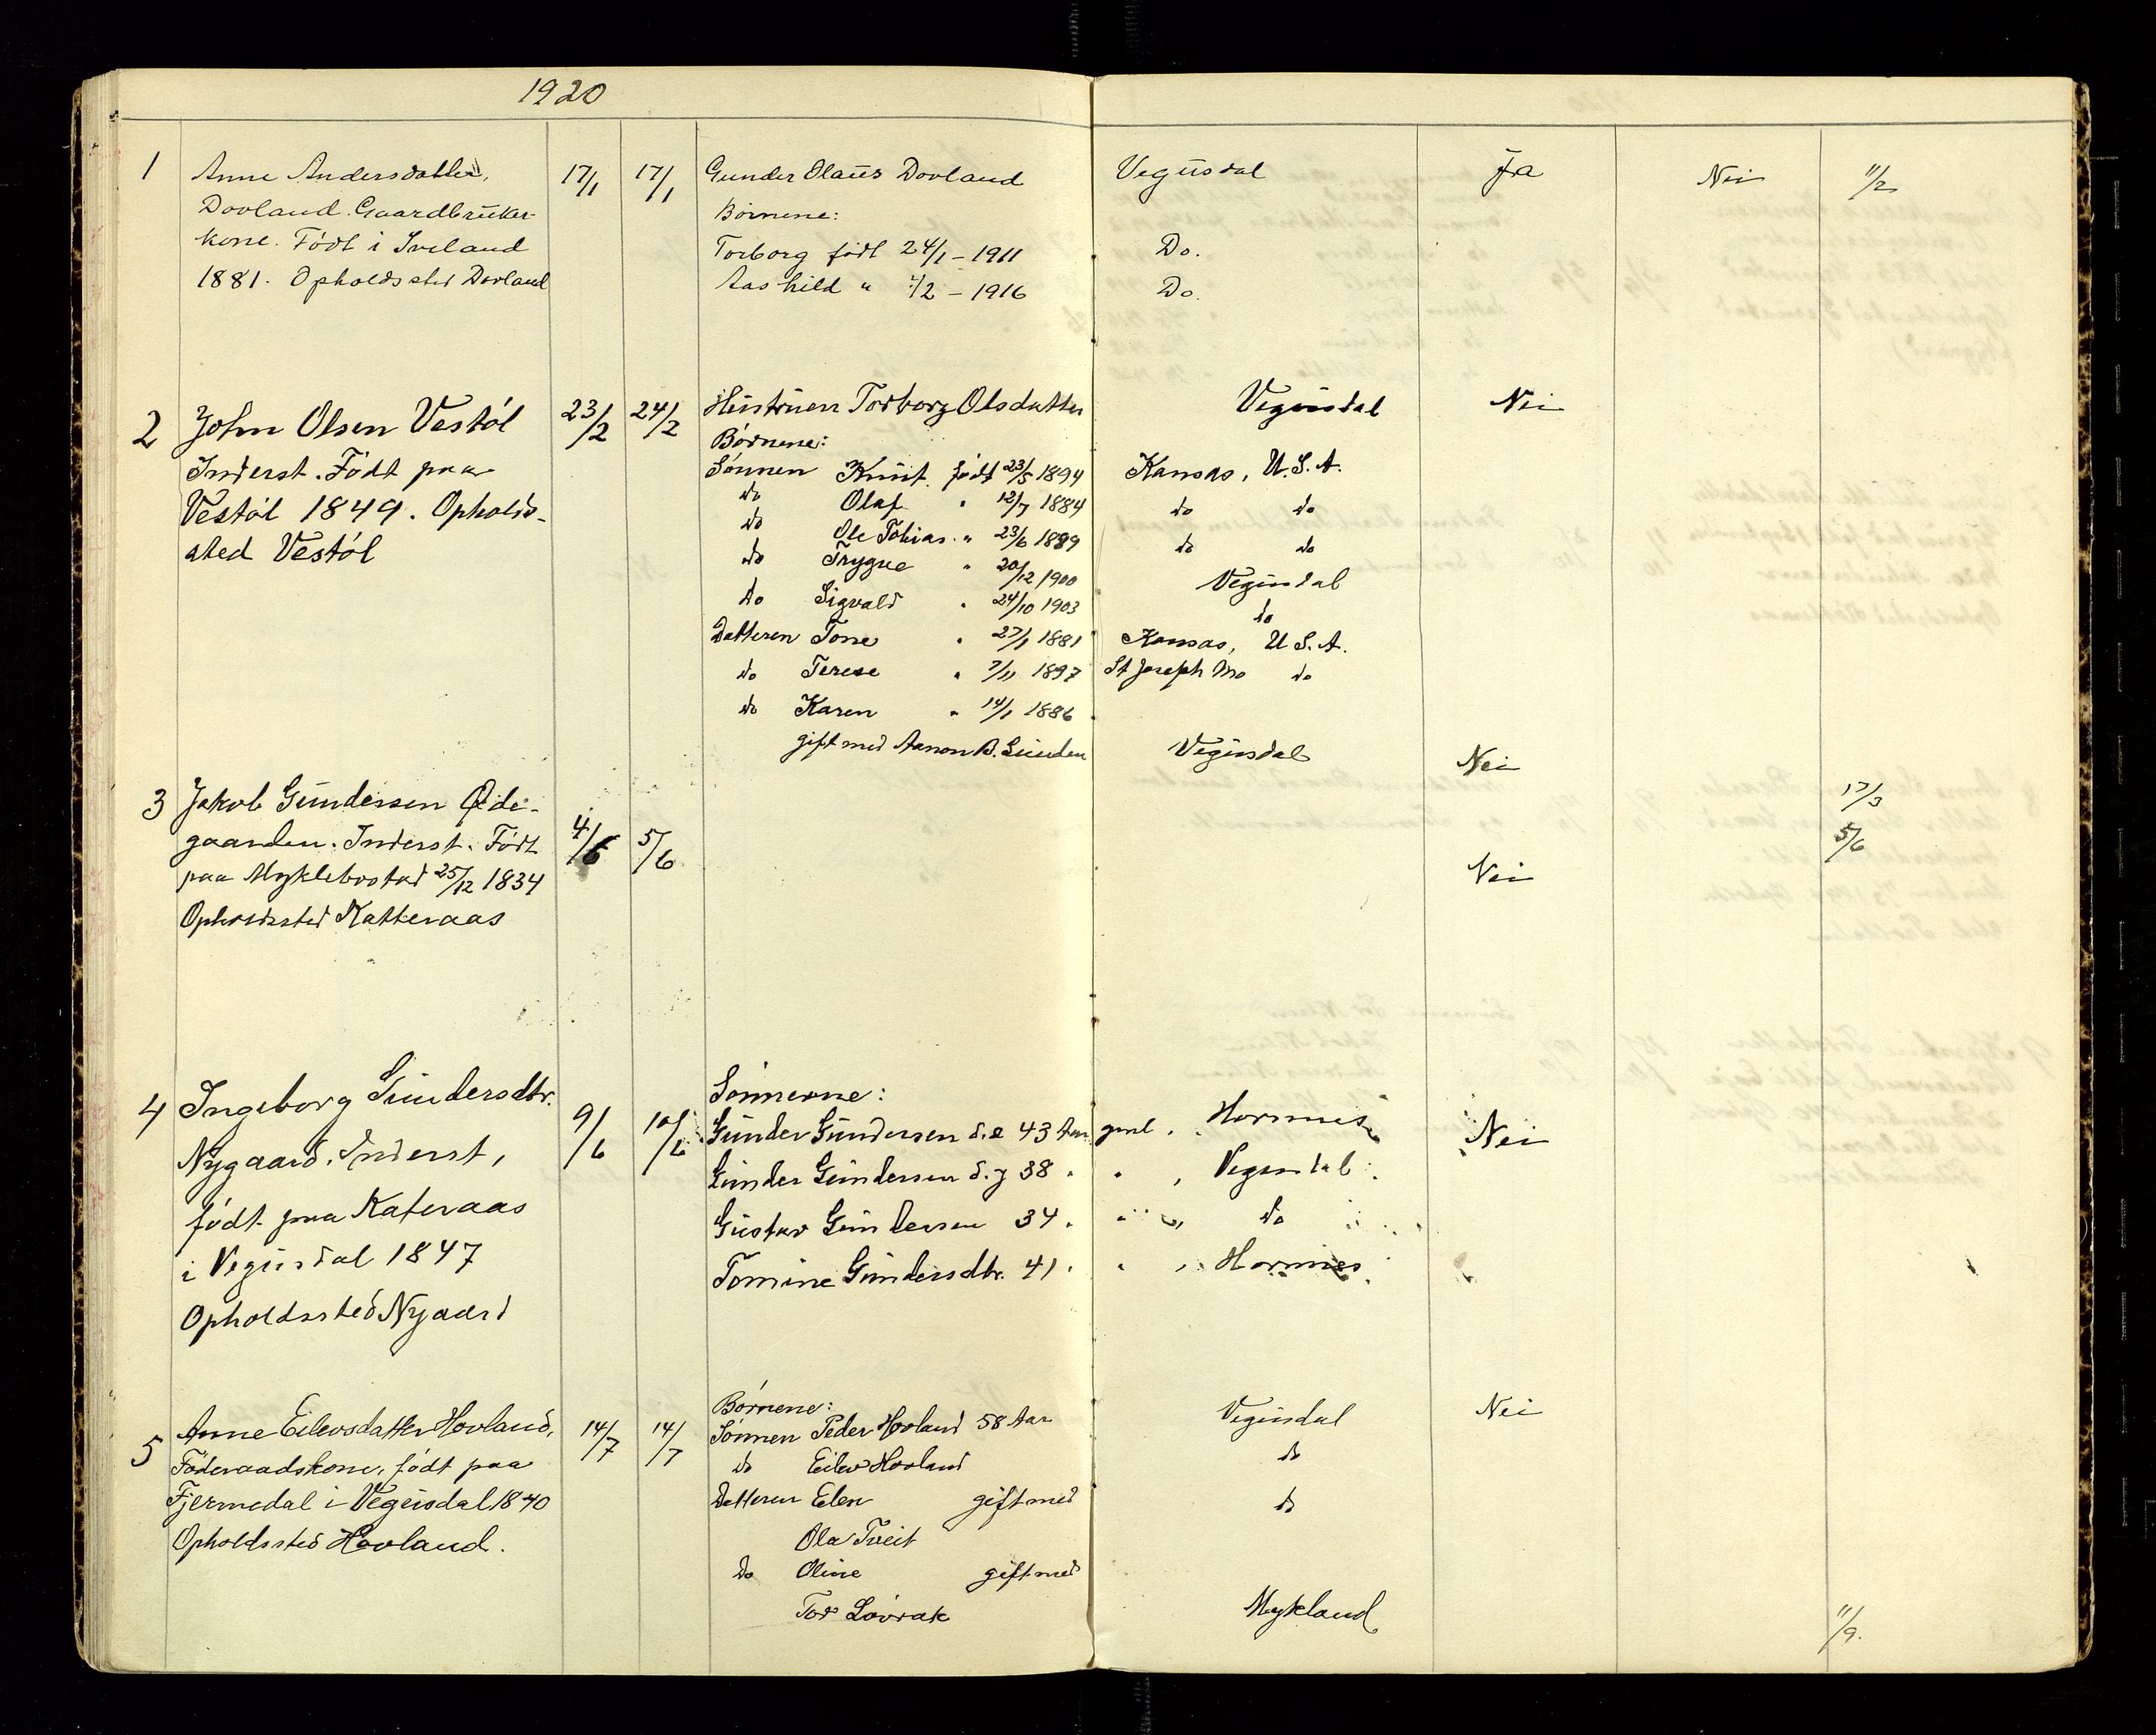 1920
1 Anne Andersdatter, 17/1 17/1 Gunder Olaus Dovland Vegusdal Ja Nei 11/2
Dovland. Gaardbruker- Børnene:
kone. Født i Iveland Torborg født 24/1 - 1911 Do.
1881. Opholdssted Dovland Aashild " 2/2 - 1916 Do.
2 John Olsen Vestøl 23/2 24/2 Hustruen Torborg Olsdatter Vegusdal Nei
Inderst. Født paa Børnene:
Vestøl 1849. Opholds- Sønnen Knut. født 23/5 1894 Kansas, U.S.A.
sted Vestøl do Olaf " 12/7 1884 do do
do Ole Tobias " 23/6 1889 do do
do Trygve " 20/12 1900 Vegusdal
do Sigvald " 24/10 1903 do
Datteren Tone " 27/1 1881 Kansas, U.S.A.
do Terese " 7/11 1897 St Joseph Mo do
do Karen " 14/1 1886
gift med Aanon B. Lunden Vegusdal Nei
3 Jakob Gundersen Øde- 4/6 5/6 17/3
gaarden. Inderst. Født 5/6
paa Myklebostad 25/12 1834 Nei
Opholdssted Katteraas
4 Ingeborg Gundersdtr. 9/6 10/6 Sønnerne:
Nygaard. Inderst, Gunder Gundersen d.e 43 Aar gml. Hornnes Nei
født paa Kateraas Gunder Gundersen d.y 38 " " , Vegusdal
i Vegusdal 1847 Gustav Gundersen 34 " " , do
Opholdssted Nygaard Tomine Gundersdtr. 41 " " , Hornnes
5 Anne Eilevsdatter Hovland, 14/7 14/7 Børnene: Vegusdal Nei
Føderaadskone, født paa Sønnen Peder Hovland 58 Aar
Fjermedal i Vegusdal 1840 do Eilev Hovland do
Opholdssted Hovland. Datteren Elen gift med do
Ola Tveit
do Oline gift med
Tor Løvrak Mykland 11/9.